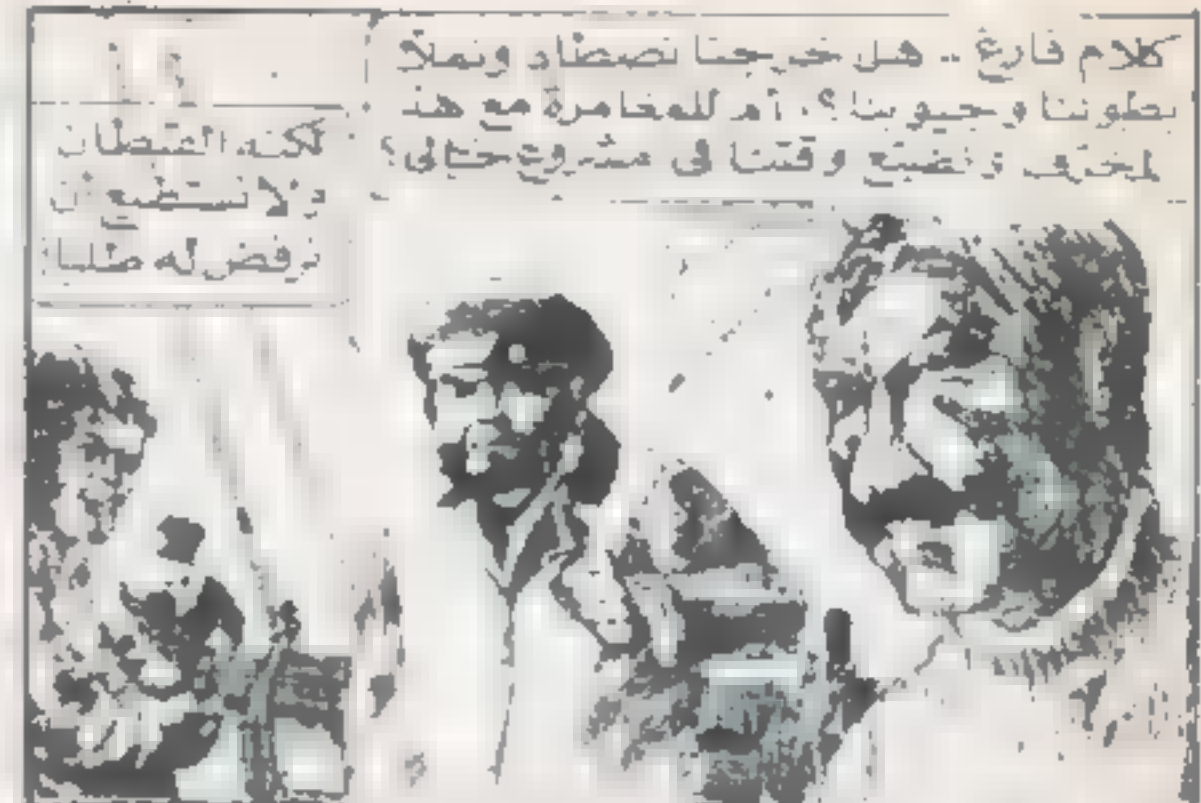 كلام فارغ .. هل خرجنا نصطاد ونملأ
بطوننا وجيوبنا ؟. أم للمغامرة مع هذ
المخرف ونضيع وقتنا فى مشروع خيالى ؟
لكنه القبطان
ولا نستطيع أن
نرفض له طلبا